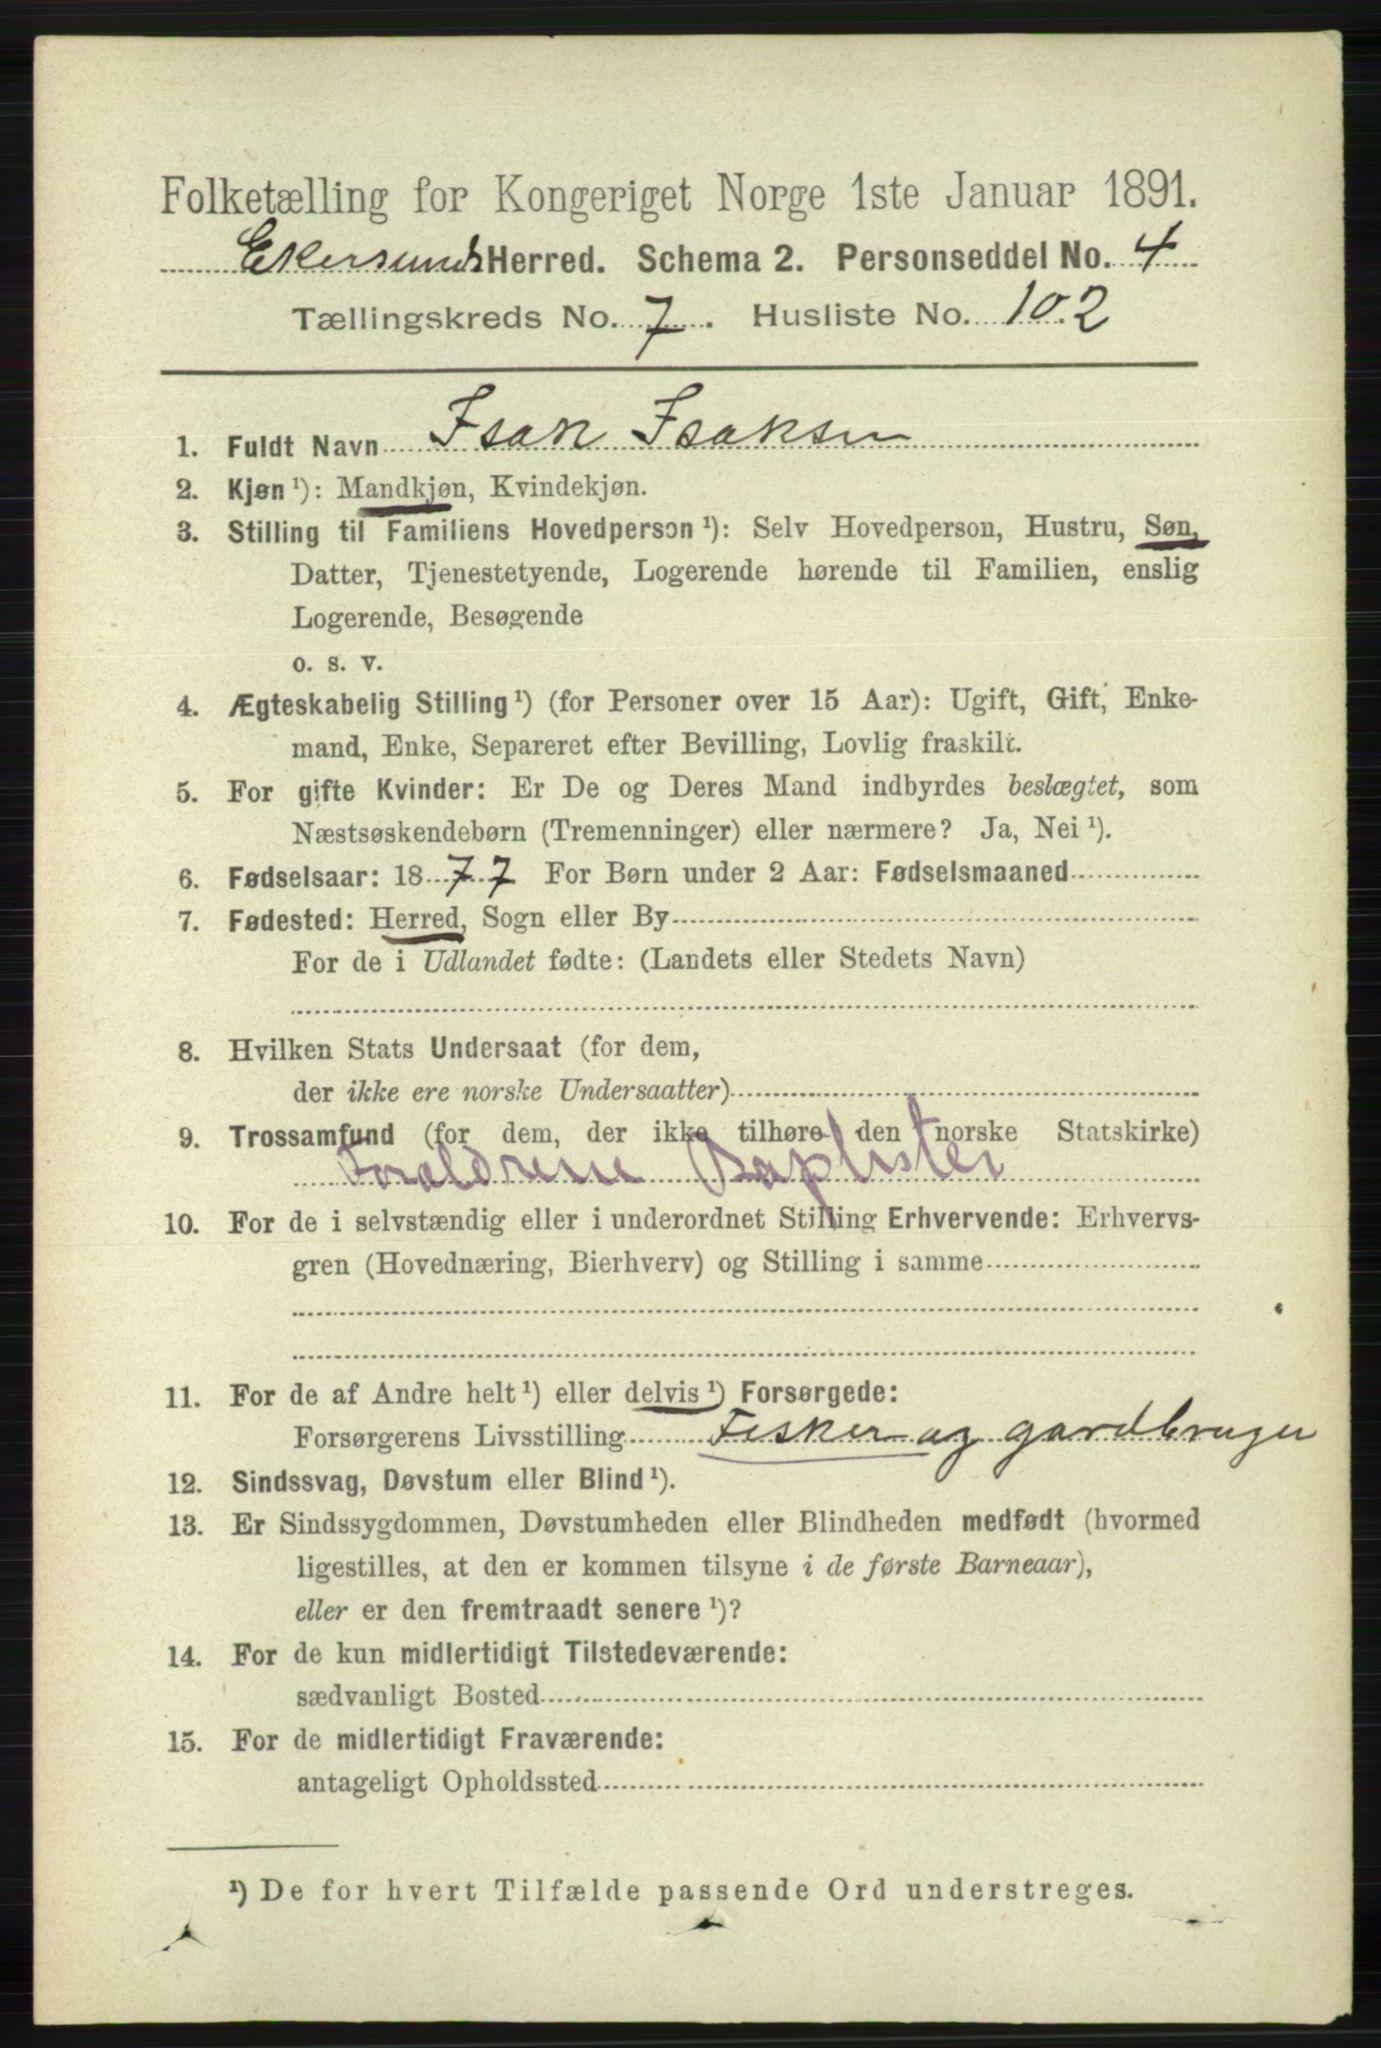 Folketælling for Kongeriget Norge 1ste Januar 1891.
Ekersunds Herred. Schema 2. Personseddel No. 4
Tællingskreds No. 7. Husliste No. 102
1. Fuldt Navn Isak Isaksen
2. Kjøn ¹): Mandkjøn, Kvindekjøn.
3. Stilling til Familiens Hovedperson ¹): Selv Hovedperson, Hustru, Søn,
Datter, Tjenestetyende, Logerende hørende til Familien, enslig
Logerende, Besøgende
o. s. v.
4. Ægteskabelig Stilling ¹) (for Personer over 15 Aar): Ugift, Gift, Enke-
mand, Enke, Separeret efter Bevilling, Lovlig fraskilt.
5. For gifte Kvinder: Er De og Deres Mand indbyrdes beslægtet, som
Næstsøskendebørn (Tremenninger) eller nærmere? Ja, Nei ¹).
6. Fødselsaar: 1877 For Børn under 2 Aar: Fødselsmaaned
7. Fødested: Herred, Sogn eller By
For de i Udlandet fødte: (Landets eller Stedets Navn)
8. Hvilken Stats Undersaat (for dem,
der ikke ere norske Undersaatter)
9. Trossamfund (for dem, der ikke tilhøre den norske Statskirke)
Forældrene Baptister
10. For de i selvstændig eller i underordnet Stilling Erhvervende: Erhvervs-
gren (Hovednæring, Bierhverv) og Stilling i samme
11. For de af Andre helt ¹) eller delvis ¹) Forsørgede:
Forsørgerens Livsstilling Fisker og gardbruger
12. Sindssvag, Døvstum eller Blind ¹).
13. Er Sindssygdommen, Døvstumheden eller Blindheden medfødt (hvormed
ligestilles, at den er kommen tilsyne i de første Barneaar),
eller er den fremtraadt senere ¹)?
14. For de kun midlertidigt Tilstedeværende:
sædvanligt Bosted
15. For de midlertidigt Fraværende:
antageligt Opholdssted
¹) De for hvert Tilfælde passende Ord understreges.